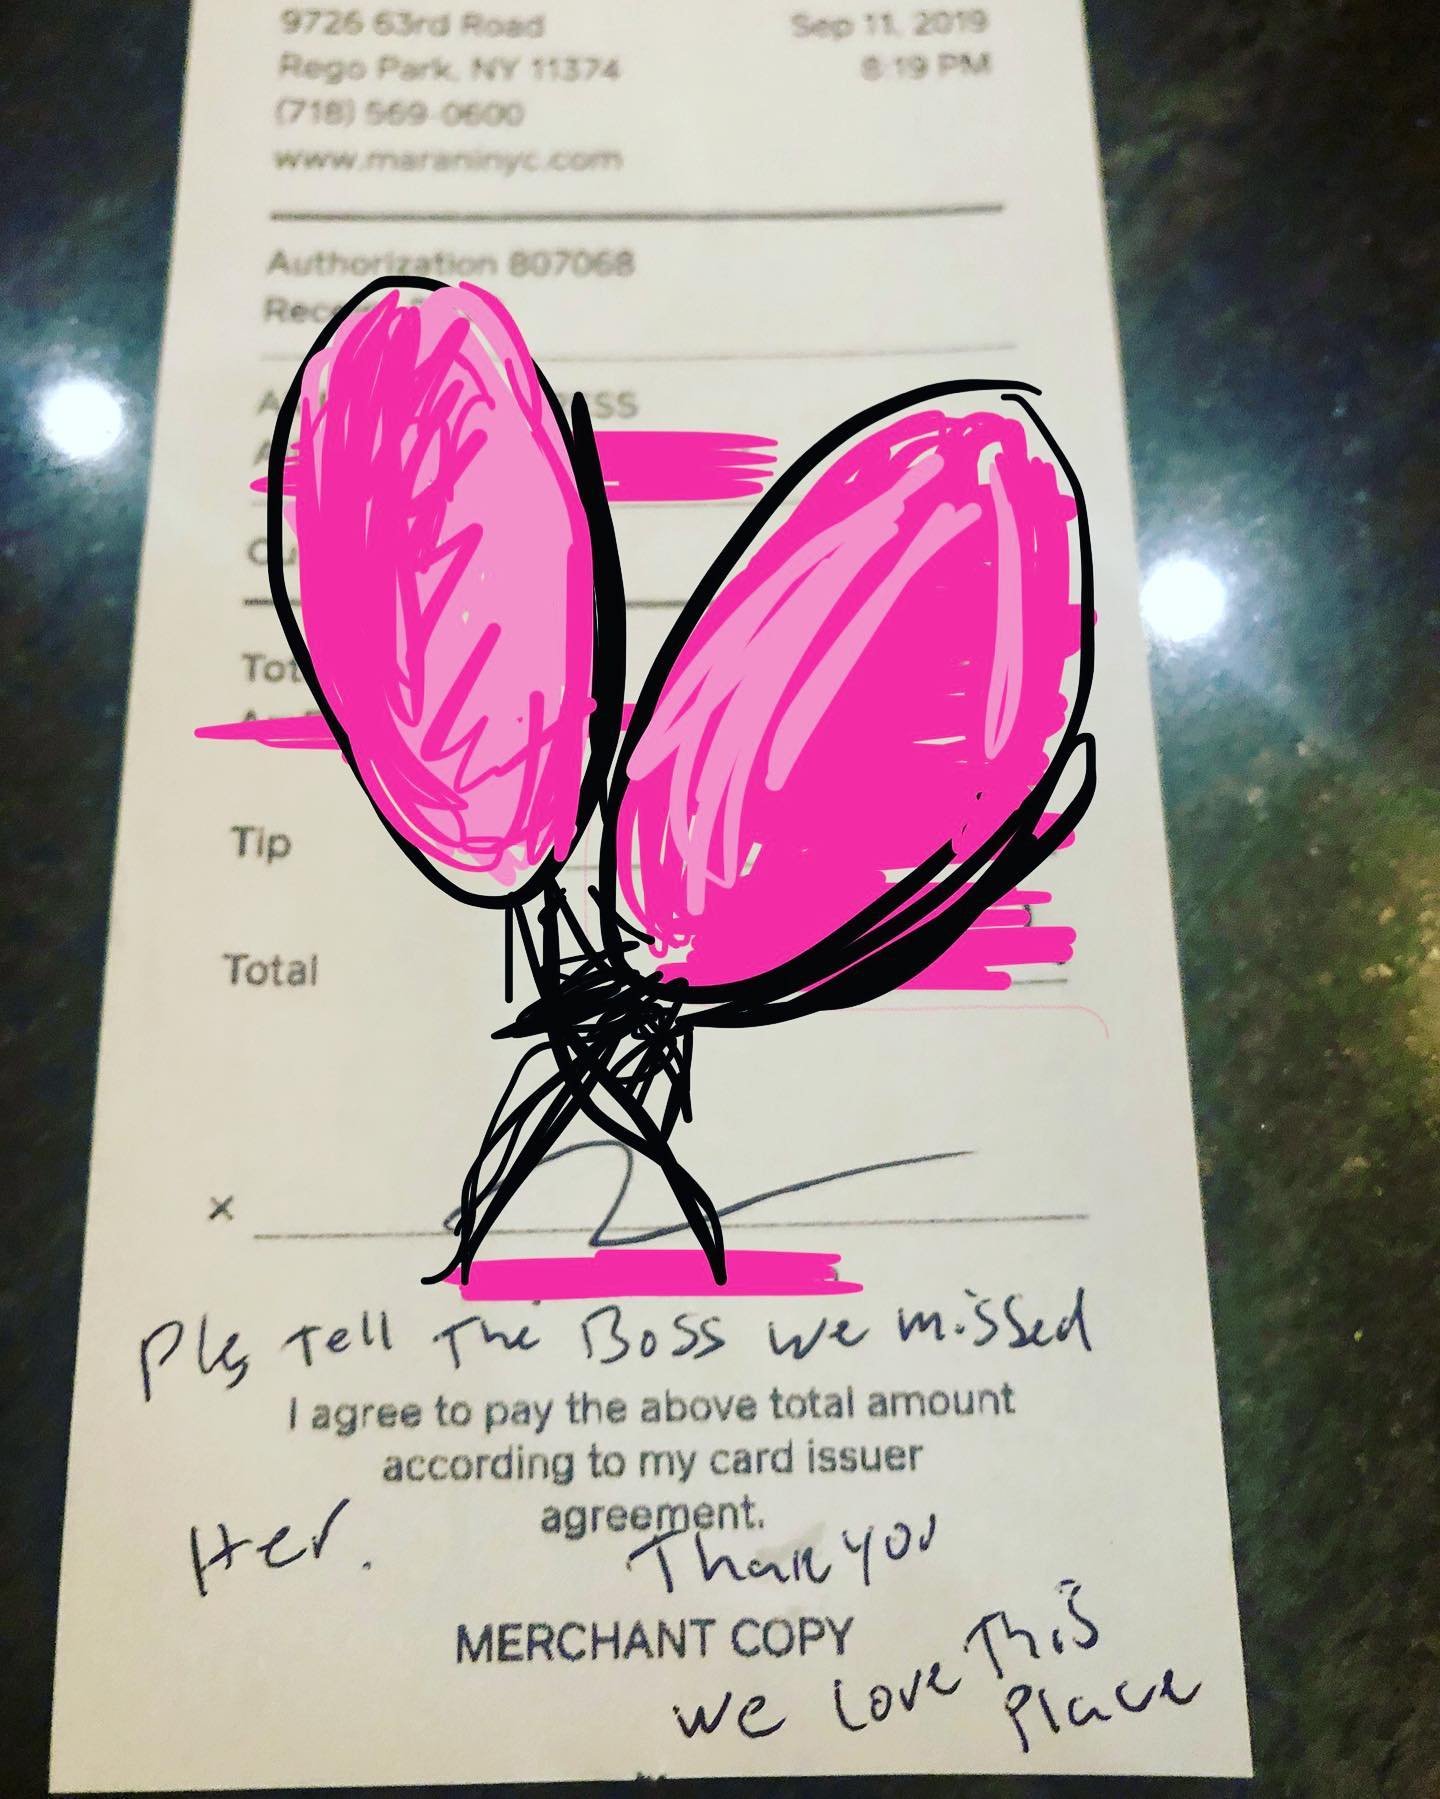 9726 63rd Road
Sep 11, 2019
Rego Park, NY 11374
8:19 PM
(718) 569-0600
www.maraninyc.com
Authorization 807068
Tip
Total
x
Pls Tell The Boss we missed
I agree to pay the above total amount
according to my card issuer
agreement.
Her.
Thank you
MERCHANT COPY
we Love This
Place